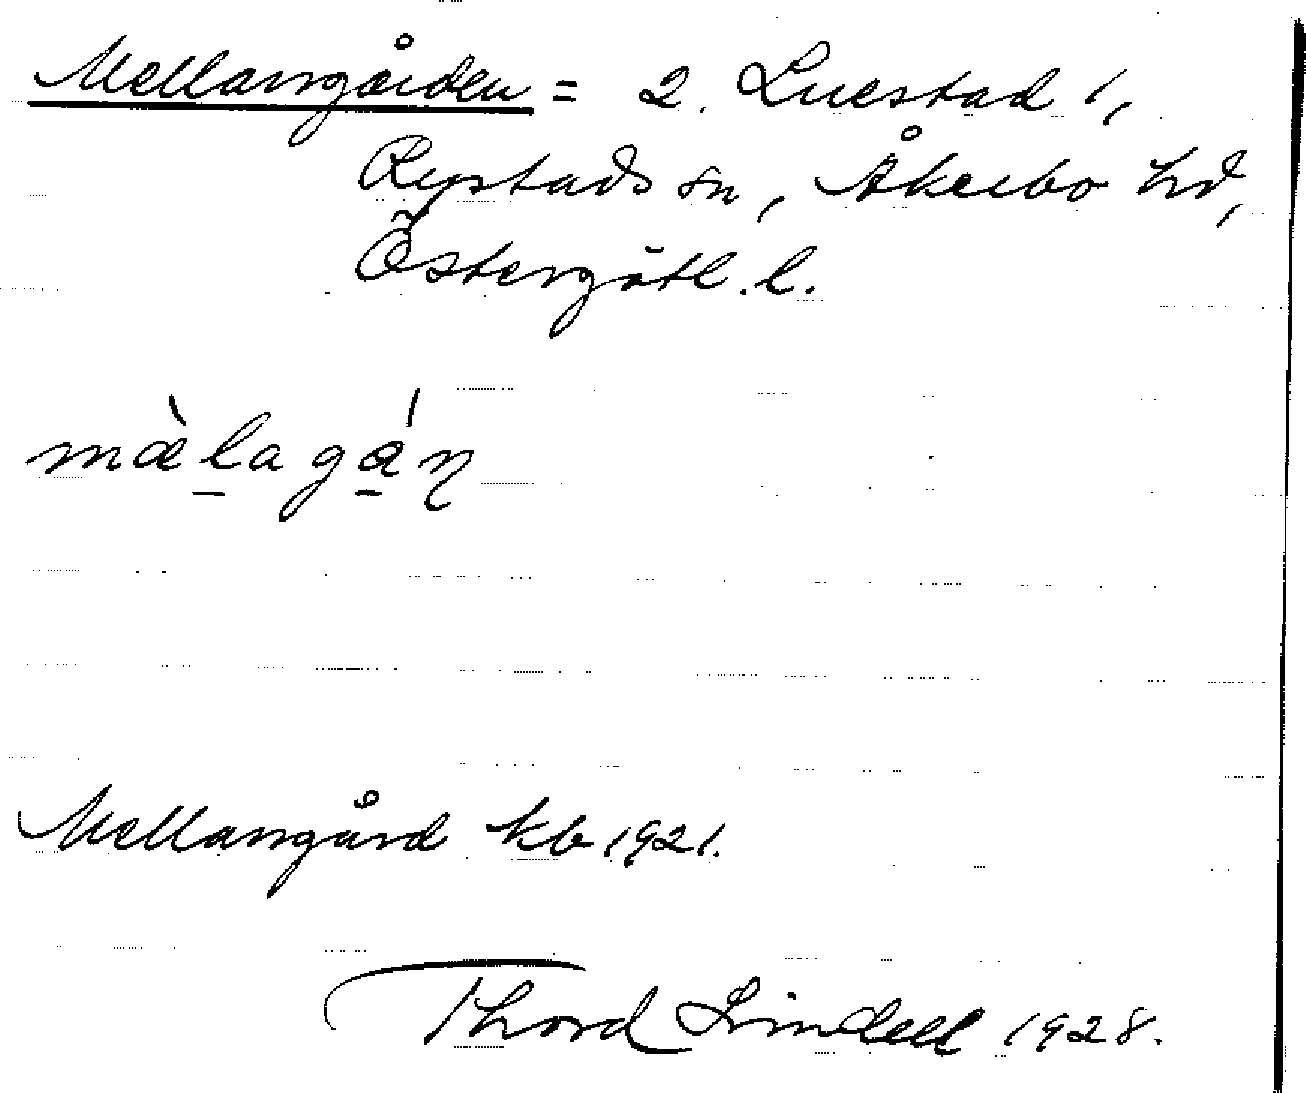 Mellangården = 2. Luestad 1,
Rystads sn, Åkerbo hd,
Östergötl. l.
mæ̀lagán
Mellangård kb 1921.
Thord Lindell 1928.